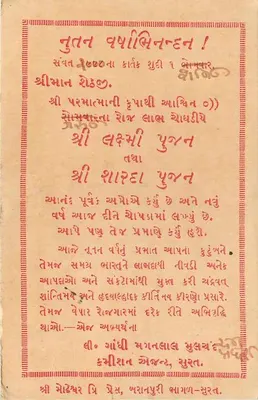 નુતન વર્ષાભિનન્દન !
સંવત ના કાર્તક શુદી ૧
શ્રીમાન શેઠજી.
શ્રી પરમાત્માની કૃપાથી આશ્વિન ૦))
સોમવારના રોજ લાભ ચોઘડીયે
શ્રી લક્ષ્મી પુજન
તથા
શ્રી શારદા પુજન
આનંદ પૂર્વક અમોએ કર્યું છે અને નવું
વર્ષ આજ રીતે ચોપડામાં લખ્યું છે.
આપે પણ તેમ પ્રમાણે કર્યું હશે.
આજે નૂતન વર્ષનું પ્રભાત આપના કુટુંબને
તેમજ સમગ્ર ભારતને લાભદાયી નીવડી અનેક
આપદાઓ અને સંકટોમાંથી મુક્ત કરી ચંદ્રવત્
શાન્તિમય અને કીર્તિનાં કીરણો પ્રસારે.
તેમજ વેપાર રોજગારમાં દરેક રીતે અભિવૃદ્ધિ
થાઓ.—એજ અભ્યર્થના
લી. ગાંધી મગનલાલ મુલચંદ
કમીશન એજન્ટ, સુરત.
શ્રી પ્રિ પ્રેસ, બરાનપુરી ભાગળ-સુરત.